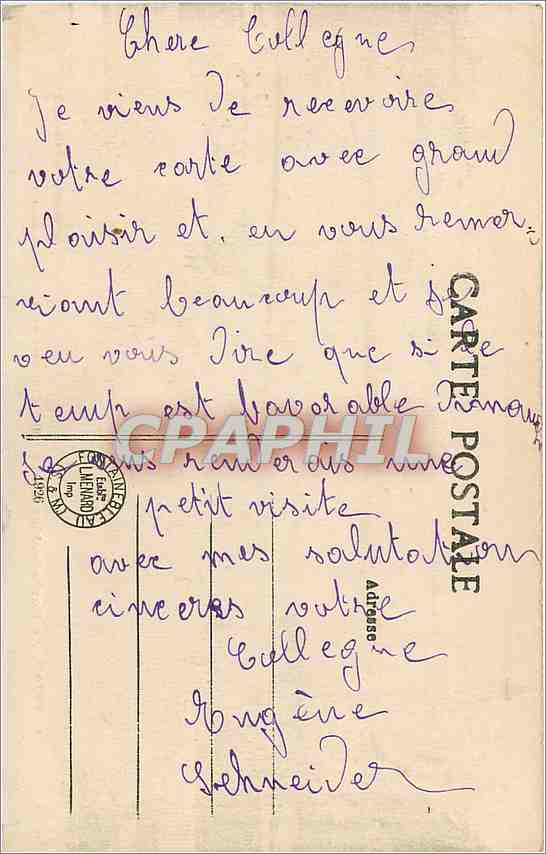 Chere Collegne
Je viens de recevoire
votre carte avec grand
plaisir et. en vous remer=
ciant beaucoup et je
veu vous dire que si le
temp est favorable
je vous renderais une
petit visite
avec mes salutation
cinceres votre
Collegne
Eugène
Schneider
CARTE POSTALE
Adresse
CPAPHIL
FONTAINEBLEAU (S. & M.)
Étabts
L. MENARD
Imp
1926